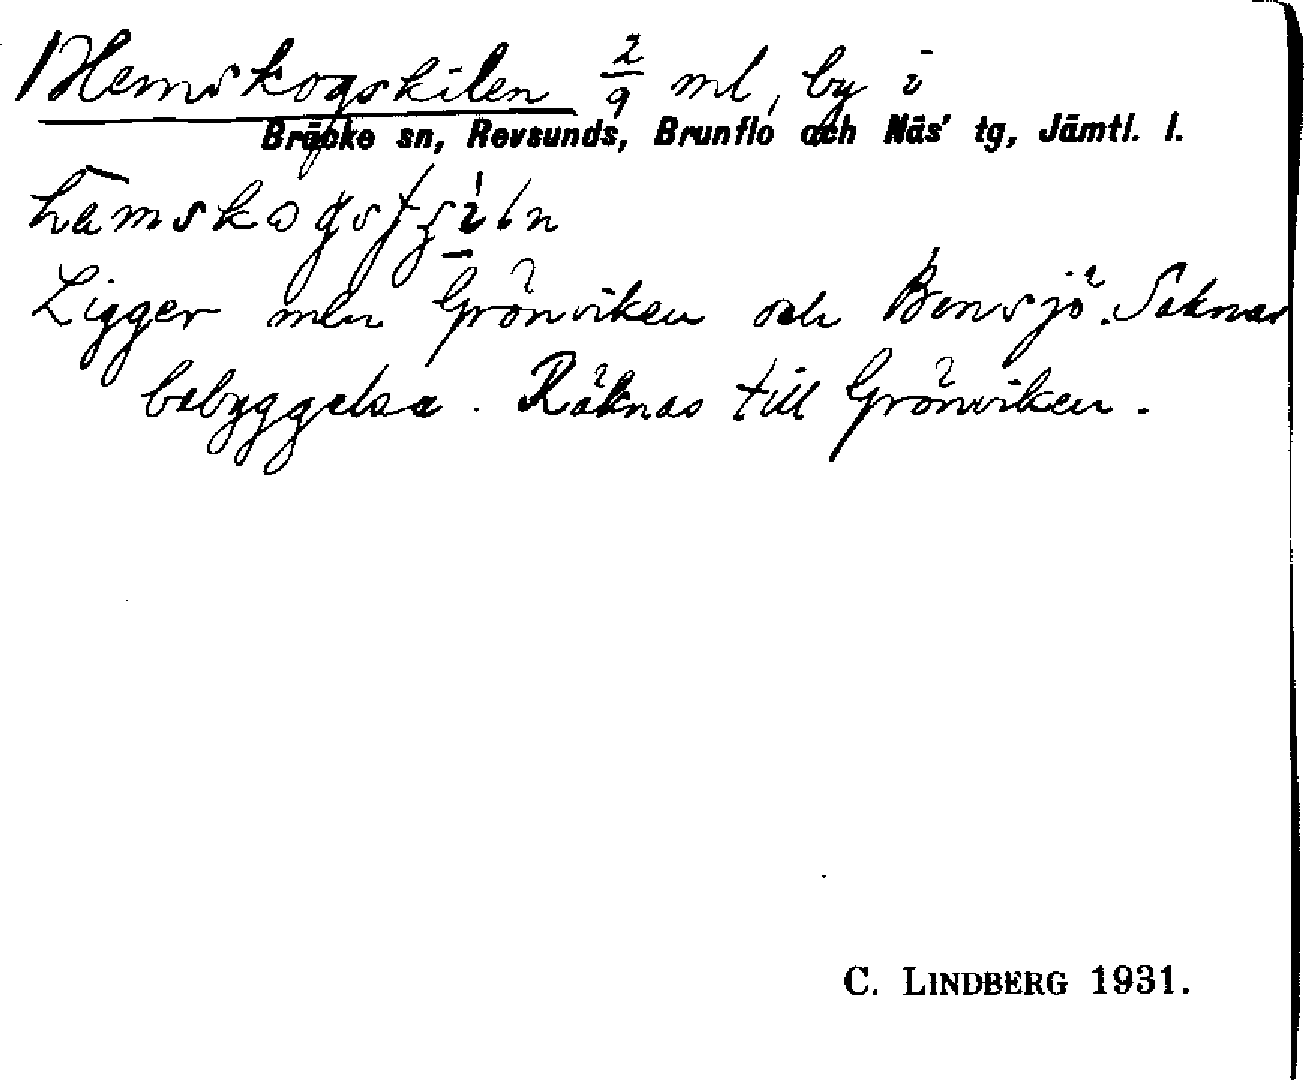 Hemskogskilen 2/9 ml, by i
Bräcke sn, Revsunds, Brunflo och Näs' tg, Jämtl. l.
Ligger mln Grönviken och Bensjö. Saknar
bebyggelse. Räknas till Grönviken.
C. LINDBERG 1931.